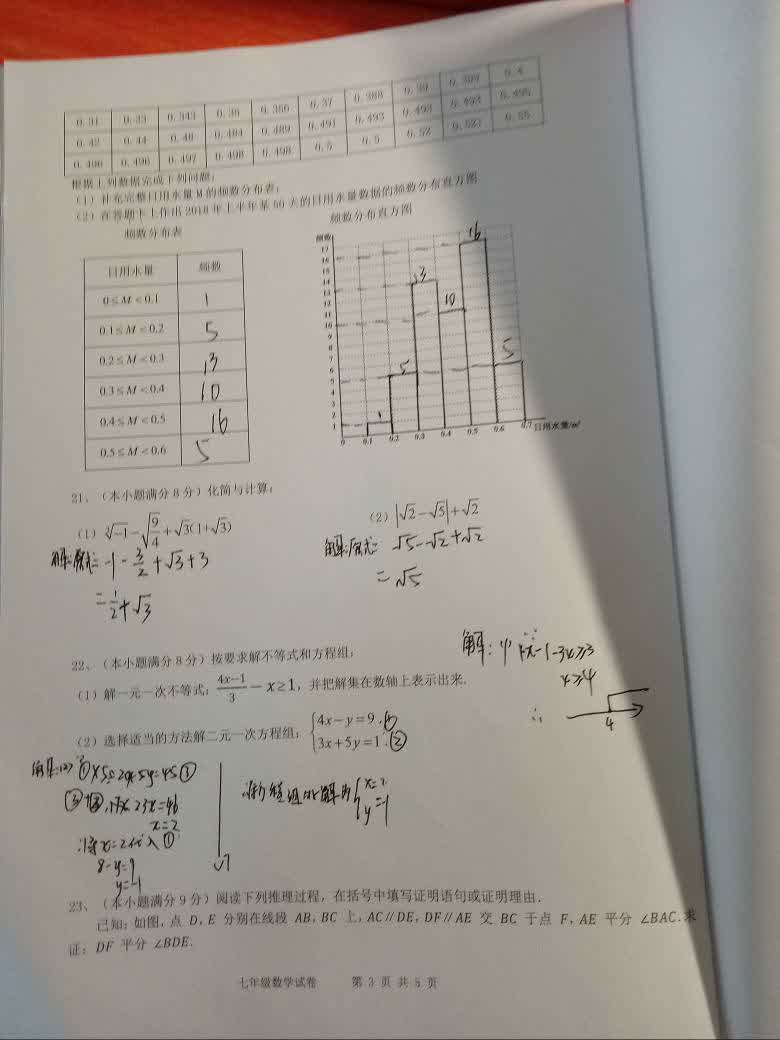 0.31 0.33 0.343 0.36 0.356 0.37 0.388 0.39 0.399 0.4
0.42 0.44 0.48 0.484 0.489 0.491 0.493 0.493 0.493 0.495
0.496 0.496 0.497 0.498 0.498 0.5 0.5 0.52 0.55
根据上列数据完成下列问题：
（1）补充完整日用水量M的频数分布表；
（2）在答题卡上作出2018年上半年某50天的日用水量数据的频数分布直方图.
频数分布表
频数分布直方图
日用水量 频数
0≤M<0.1 1
0.1≤M<0.2 5
0.2≤M<0.3 13
0.3≤M<0.4 10
0.4≤M<0.5 16
0.5≤M<0.6 5
频数
17
16
15
14
13
12
11
10
9
8
7
6
5
4
3
2
1
1 5 13 10 16 5
0 0.1 0.2 0.3 0.4 0.5 0.6 0.7 日用水量/m³
21、（本小题满分8分）化简与计算：
（1）∛-1-√(9/4)+√3(1+√3)
解:原式=-1-3/2+√3+3
=1/2+√3
（2）|√2-√5|+√2
解:原式=√5-√2+√2
=√5
22、（本小题满分8分）按要求解不等式和方程组：
（1）解一元一次不等式：(4x-1)/3-x≥1，并把解集在数轴上表示出来.
解：(1) 4x-1-3x≥3
x≥4
∴
4
（2）选择适当的方法解二元一次方程组：{4x-y=9.① 3x+5y=1.②
解:(2) ①×5:20x-5y=45③
23x=46
x=2
将x=2代入①
8-y=9
y=-1
∴方程组的解为{x=2 y=-1
23、（本小题满分9分）阅读下列推理过程，在括号中填写证明语句或证明理由.
已知：如图，点 D，E 分别在线段 AB，BC 上，AC∥DE，DF∥AE 交 BC 于点 F，AE 平分 ∠BAC.求
证：DF 平分 ∠BDE.
七年级数学试卷 第 3 页 共 5 页